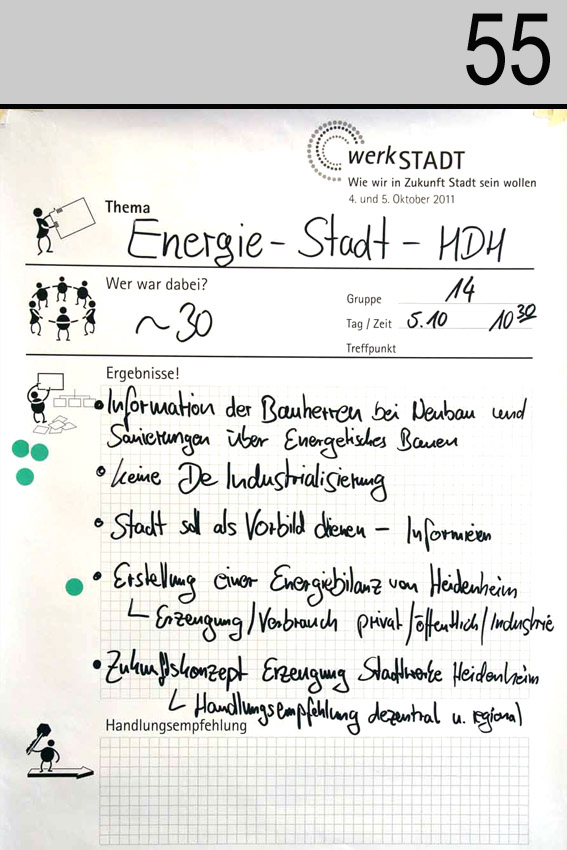 55
werkSTADT
Wie wir in Zukunft Stadt sein wollen
4. und 5. Oktober 2011
Thema
Energie - Stadt - HDH
Wer war dabei?
~ 30
Gruppe 14
Tag / Zeit 5.10 10 30
Treffpunkt
Ergebnisse!
• Information der Bauherren bei Neubau und
Sanierungen über Energetisches Bauen
• keine De Industrialisierung
• Stadt soll als Vorbild dienen – Informieren
• Erstellung einer Energiebilanz von Heidenheim
Erzeugung/Verbrauch privat/öffentlich/Industrie
• Zukunftskonzept Erzeugung Stadtwerke Heidenheim
Handlungsempfehlung dezentral u. regional
Handlungsempfehlung